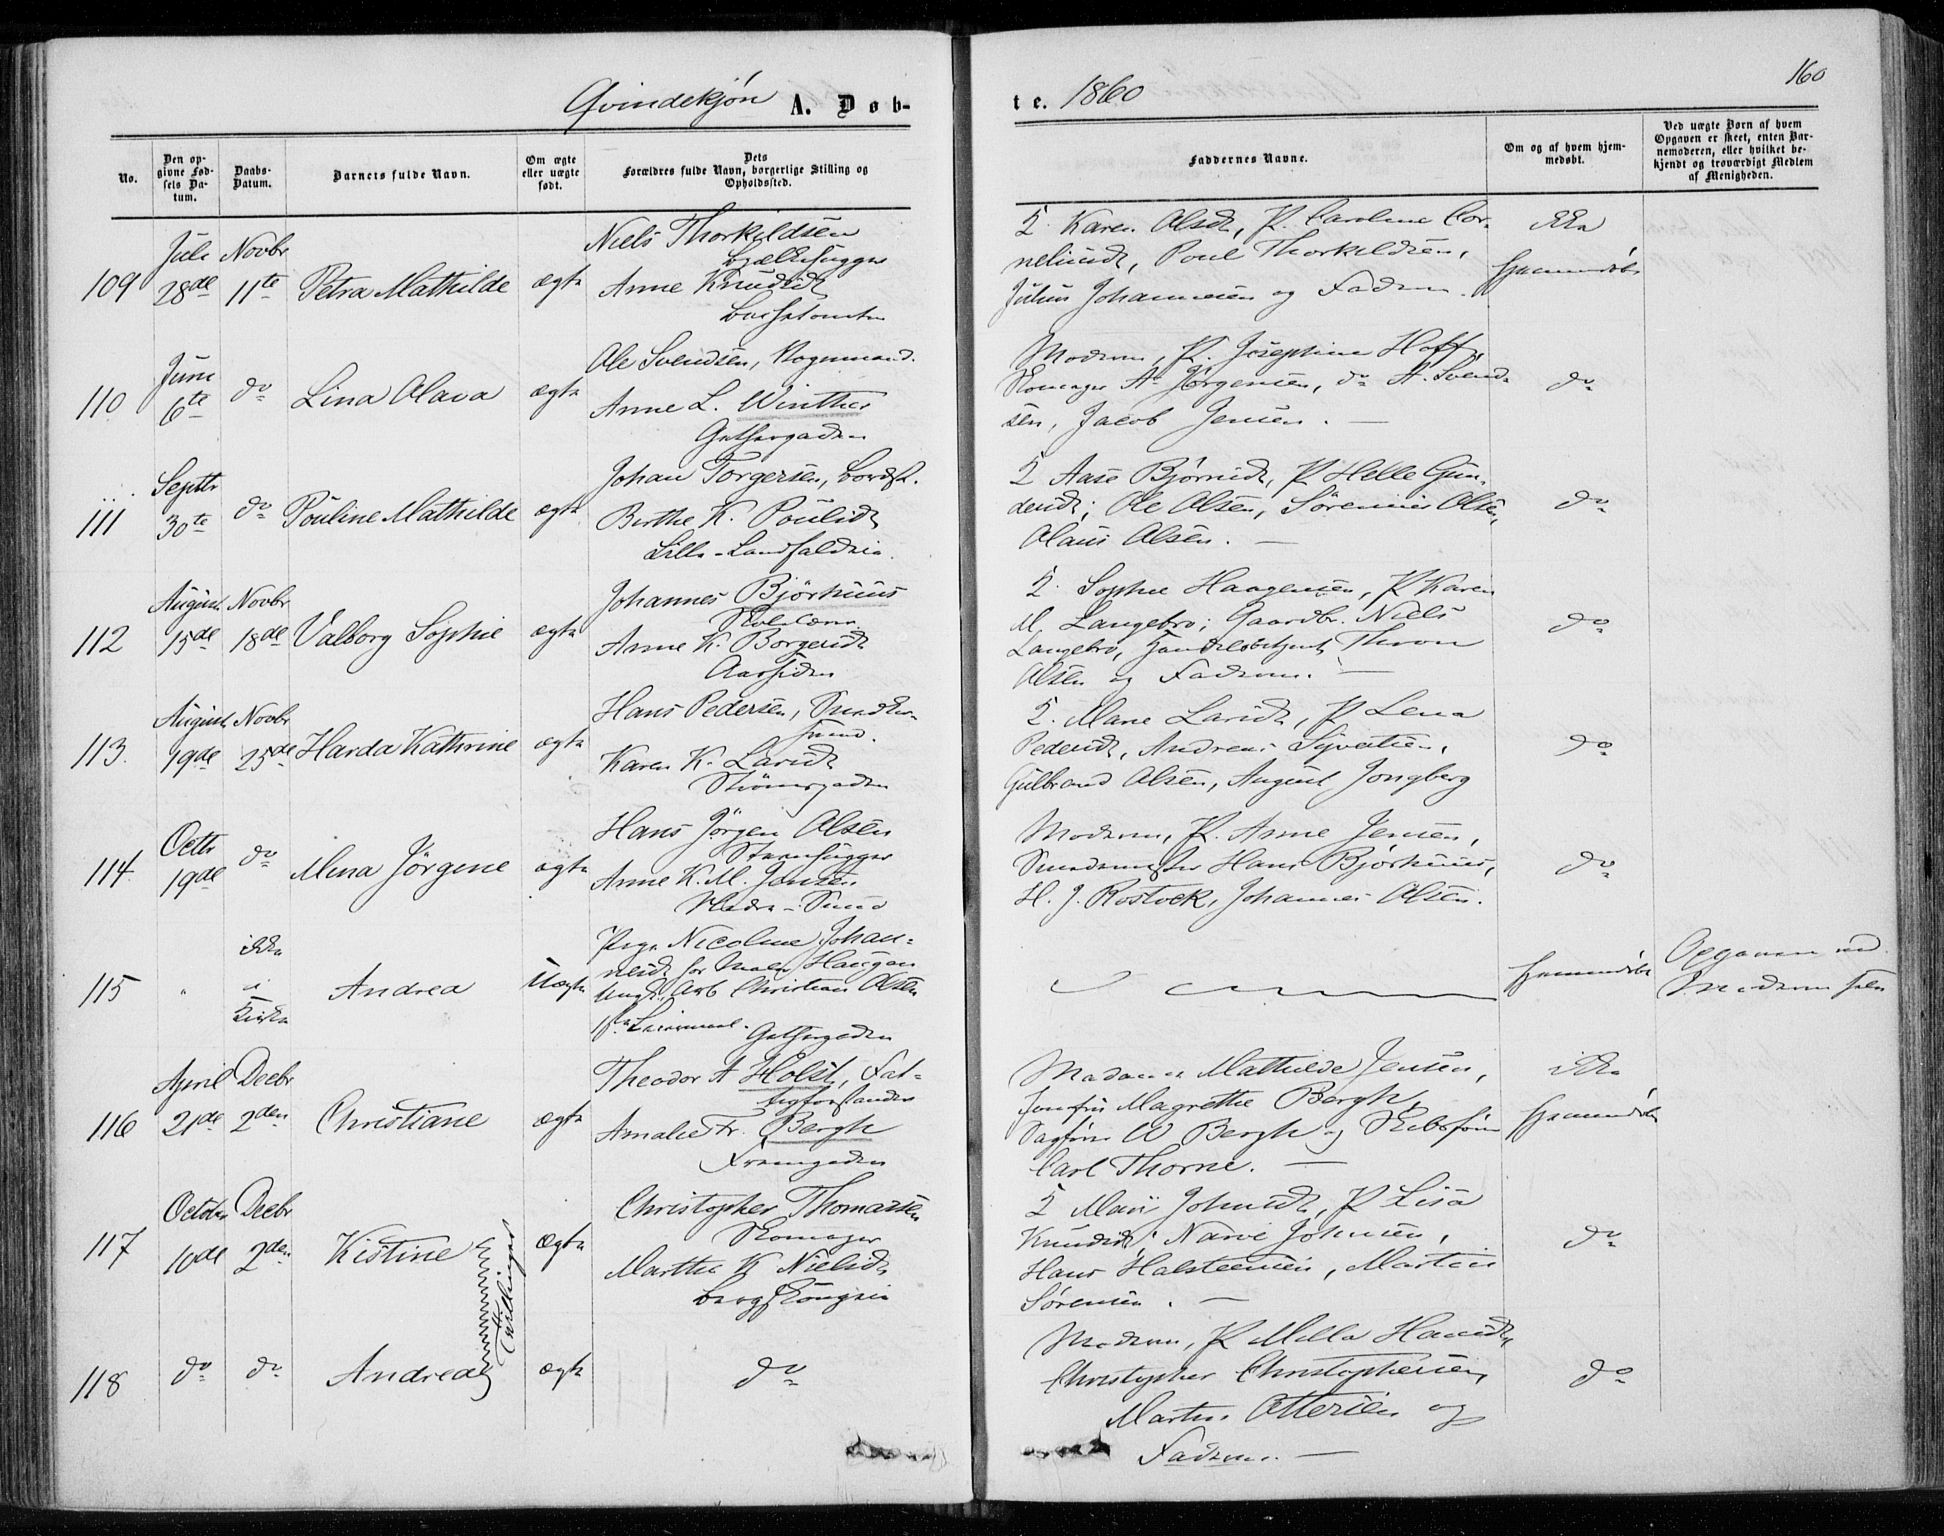 160
Qvindekjøn A. Døb-
te. 1860
No.
Den op-
givne Fød-
sels Da-
tum.
Daabs-
Datum.
Barnets fulde Navn.
Om ægte
eller uægte
født.
Dets
Forældres fulde Navn, borgerlige Stilling og
Opholdssted.
Faddernes Navne.
Om og af hvem hjem-
medøbt.
Ved uægte Børn af hvem
Opgaven er skeet, enten Bar-
nemoderen, eller hvilket be-
kjendt og troværdigt Medlem
af Menigheden.
109
Juli
28de
Novbr
11te
Petra Mathilde
ægte
Niels Thorkildsen
Bjælkehugger
Anne Knudsdt
Q. Karen Olsdt, P. Caroline Cor-
neliusdt, Poul Thorkildsen,
Julius Johannesen og Faderen.
ikke
hjemmedøbt
110
Juni
6te
do
Lina Olava
ægte
Ole Svendsen, Vognmand.
Anne L. Winther
Gethergaden
Moderen, P. Josephine Hoff,
Skomager A. Jørgensen, do A. Svend-
sen, Jacob Jensen.
do
111
Septbr
30te
do
Pouline Mathilde
ægte
Johan Torgersen,
Birthe K. Poulsdt
Lille-Landfaldøie.
Q Aase Bjørnsdt, P. Helle Gun-
dersdt; Ole Olsen, Sørenius Olsen,
Olaus Olsen.
do
112
August
15de
Novbr
18de
Valborg Sophie
ægte
Johannes Björhuus
Anne K. Borgersdt
Aassiden
Q. Sophie Haagensen, P Karen
M. Langebro; Gaardbr. Niels
Langebro, Handelsbetjent Thron
Olsen og Faderen.
do
113.
August
19de
Novbr
25de
Harda Kathrine
ægte
Hans Pedersen, Smedker-
svend.
Karen K. Larsdt
Strømsgaden
Q. Marie Larsdt, P Lena
Pedersdt, Andreas Syvertsen,
Gulbrand Olsen, August Jongberg
do
114
Octbr
19de
do
Mina Jörgine
ægte
Hans Jörgen Olsen
Steenhugger
Anne K. M. Jensen
Moderen, P. Anne Jensen,
Smedemester Hans Björhuus,
H. J. Rostock, Johannes Olsen.
do
115
"
ikke
i
Kirke
Andrea
Uægte
Pige Nicoline Johan-
nesdt for Malm Haugen
Ungk. Arb Christian Olsen
1ste Leiermaal. Gethergaden
hjemmedøbt
Opgaven ved
Moderen selv
116
April
21de
Decbr
2den
Christiane
ægte
Theodor A Holst, Fat-
tigforstander
Amalie Fr. Bergh
Framgaden
Madame Mathilde Jensen,
Jomfru Magrethe Bergh,
Sagfører W Bergh og Skibsfører
Carl Thorne.
ikke
hjemmedøbt
117
October
10de
Decbr
2den
Kistine
Tvillinger
Ægte
Christopher Thomassen
Skomager
Marthe K Nielsdt
Bergskougeie
Q Mari Johnsdt, P Lisa
Knudsdt; Narve Johnsen,
Hans Halsteensen, Martin
Sørensen.
do
118
do
do
Andrea
ægte
do
Moderen, P Mille Hansdt,
Christopher Christophersen,
Martin Ottersen og
Faderen.
do